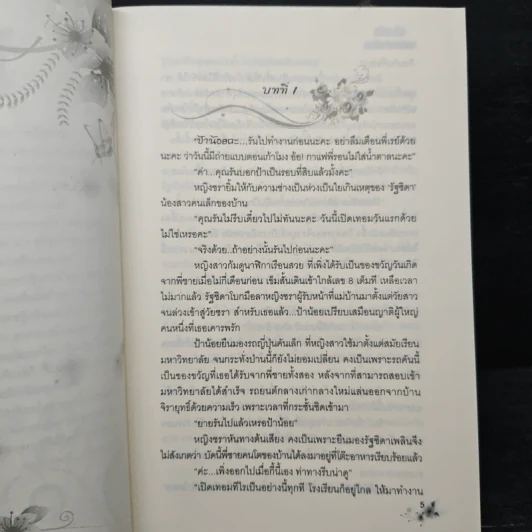 บทที่ 1
"ป้าน้อยนะ...รันไปทำงานก่อนนะคะ อย่าลืมเตือนพี่เรย์ด้วย
นะคะ ว่าวันนี้มีถ่ายแบบตอนเก้าโมง อ้อ! กาแฟพี่รอนไม่ใส่น้ำตาลนะคะ"
"ค่า...คุณรันบอกป้าเป็นรอบที่สิบแล้วมั้งคะ"
หญิงชรายิ้มให้กับความช่างเป็นห่วงเป็นใยเกินเหตุของ 'รัฐธิดา'
น้องสาวคนเล็กของบ้าน
"คุณรันไม่รีบเดี๋ยวไปไม่ทันนะคะ วันนี้เปิดเทอมวันแรกด้วย
ไม่ใช่เหรอคะ"
"จริงด้วย..ถ้าอย่างนั้นรันไปก่อนนะคะ"
หญิงสาวก้มดูนาฬิกาเรือนสวย ที่เพิ่งได้รับเป็นของขวัญวันเกิด
จากพี่ชายเมื่อไม่กี่เดือนก่อน เข็มสั้นเดินเข้าใกล้เลข 8 เต็มที เหลือเวลา
ไม่มากแล้ว รัฐธิดาโบกมือลาหญิงชราผู้รับหน้าที่แม่บ้านมาตั้งแต่วัยสาว
จนล่วงเข้าสู่วัยชรา สำหรับเธอแล้ว...ป้าน้อยเปรียบเสมือนญาติผู้ใหญ่
คนหนึ่งที่เธอเคารพรัก
ป้าน้อยยืนมองรถญี่ปุ่นคันเล็ก ที่หญิงสาวใช้มาตั้งแต่สมัยเรียน
มหาวิทยาลัย จนกระทั่งป่านนี้ก็ยังไม่ยอมเปลี่ยน คงเป็นเพราะรถคันนี้
เป็นของขวัญที่เธอได้รับจากพี่ชายทั้งสอง หลังจากที่สามารถสอบเข้า
มหาวิทยาลัยได้สำเร็จ รถยนต์กลางเก่ากลางใหม่แล่นออกจากบ้าน
จิรายุทธิ์ด้วยความเร็ว เพราะเวลาที่กระชั้นชิดเข้ามา
"ยายรันไปแล้วเหรอป้าน้อย"
หญิงชราหันทางต้นเสียง คงเป็นเพราะยืนมองรัฐธิดาเพลินจึง
ไม่สังเกตว่า บัดนี้พี่ชายคนโตของบ้านได้ลงมาอยู่ที่โต๊ะอาหารเรียบร้อยแล้ว
"ค่ะ...เพิ่งออกไปเมื่อกี้นี้เอง ท่าทางรีบน่าดู"
"เปิดเทอมทีไรเป็นอย่างนี้ทุกที โรงเรียนก็อยู่ไกล ให้มาทำงาน
5